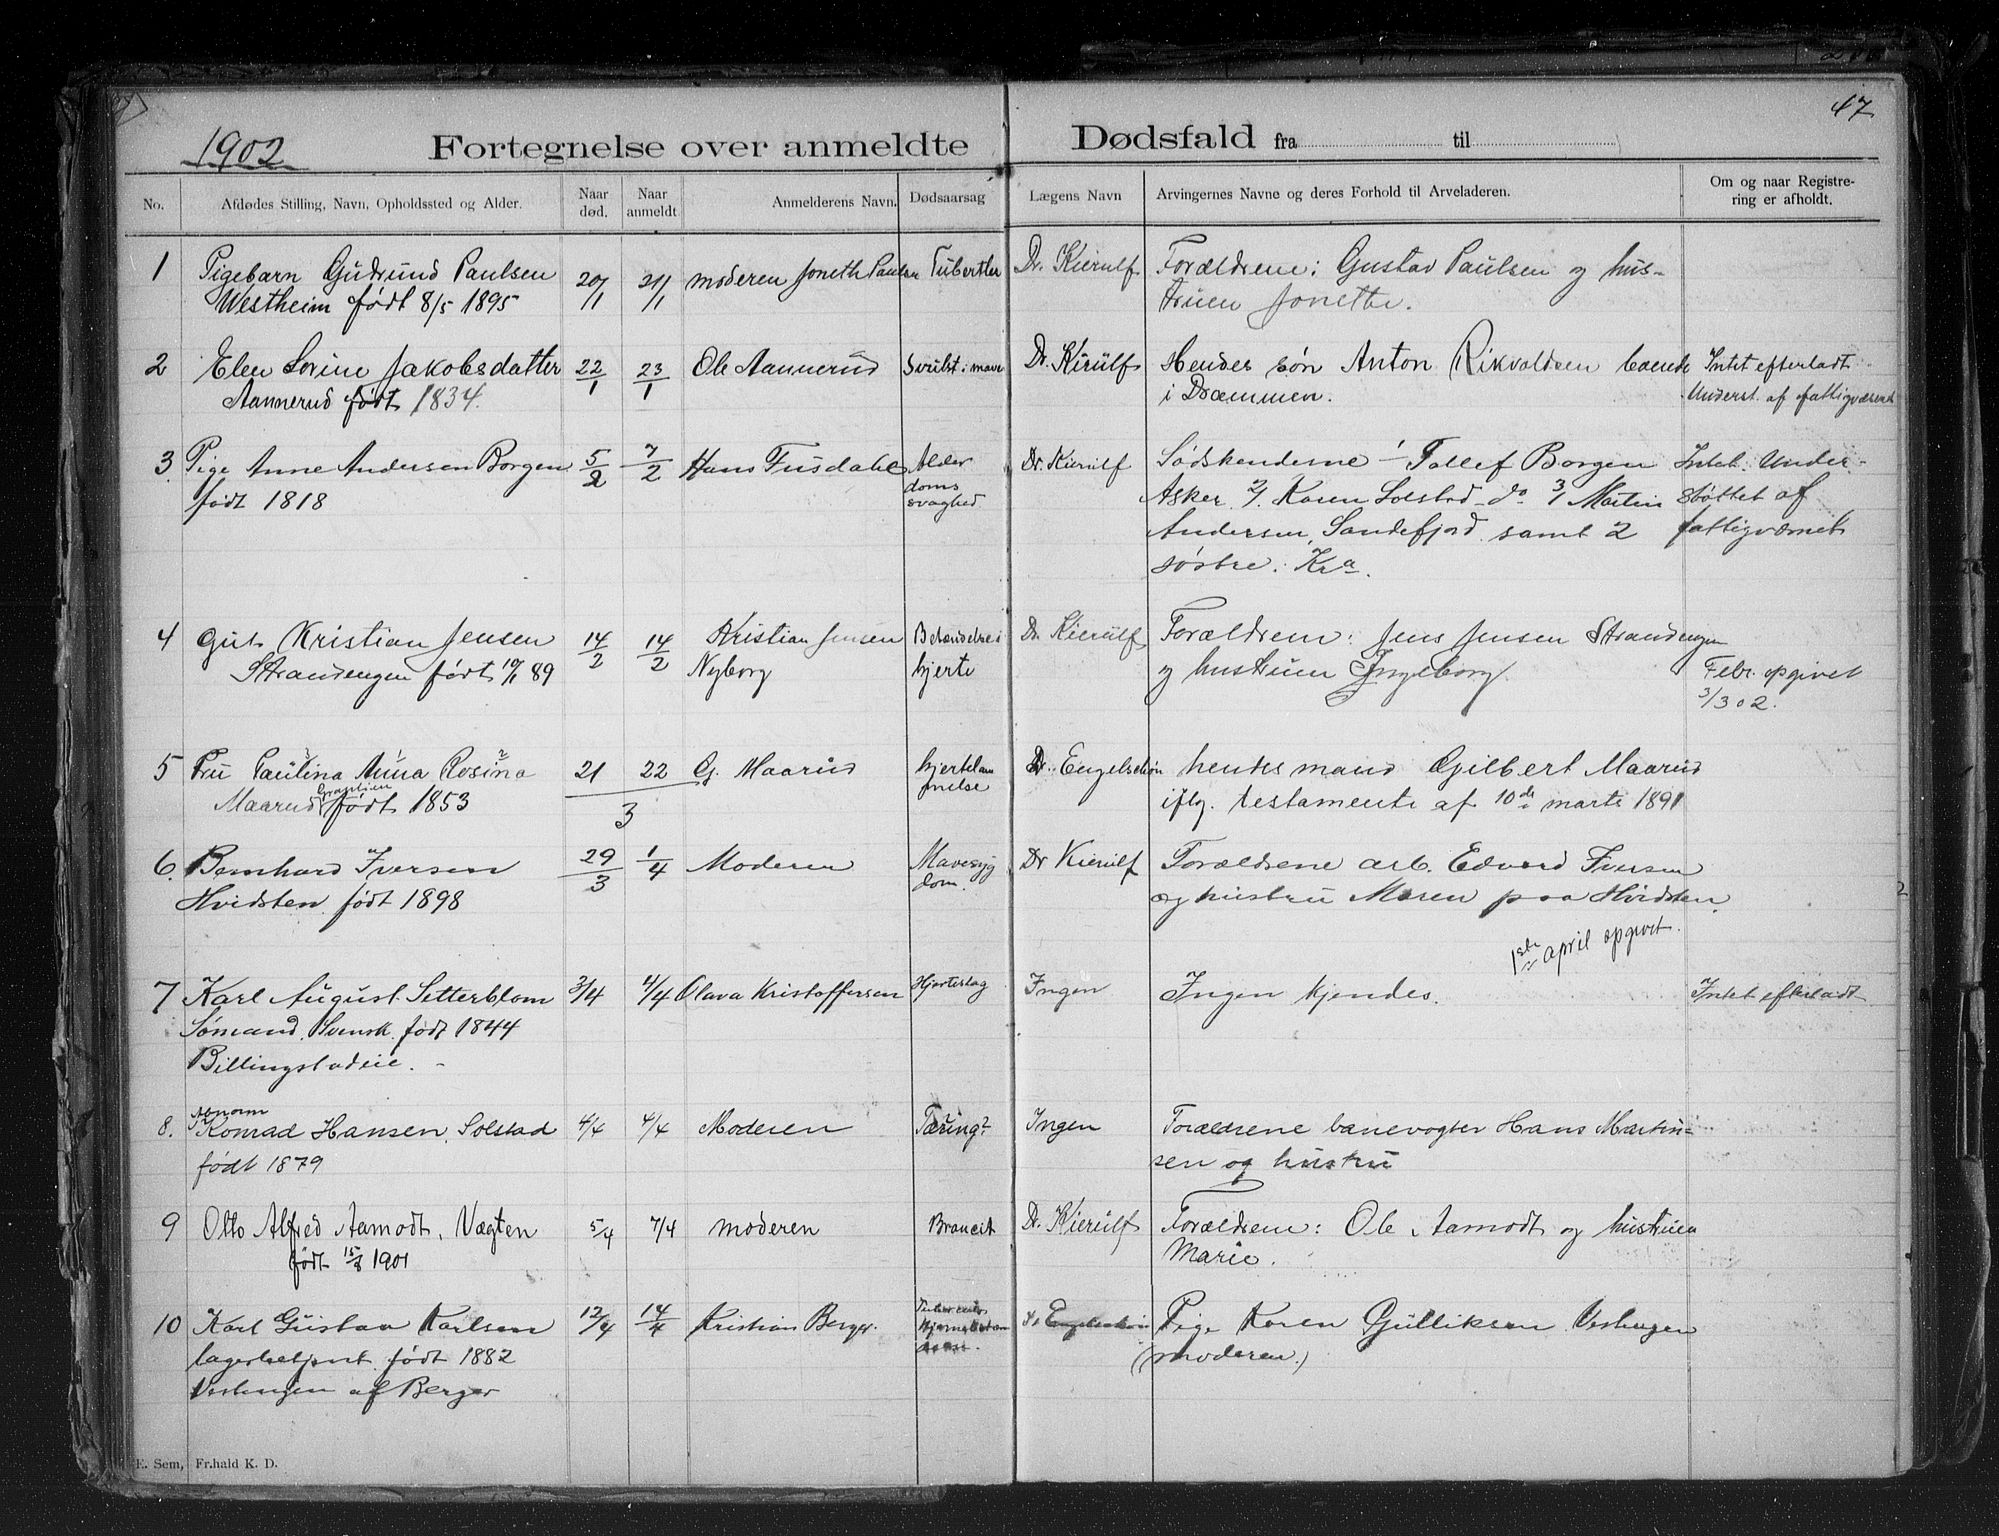 47
1902 Fortegnelse over anmeldte Dødsfald fra til
No. Afdødes Stilling, Navn, Opholdssted og Alder. Naar død. Naar anmeldt Anmelderens Navn. Dødsaarsag Lægens Navn Arvingernes Navne og deres Forhold til Arveladeren. Om og naar Registre-
ring er afholdt.
1 Pigebarn Gudrund Paulsen 20/1 21/1 moderen Joneth Paulsen Tuberkler Dr. Kierulf Forældrene: Gustav Paulsen og hus-
Westheim født 8/5 1895 truen Jonette.
2 Elen Sorine Jakobsdatter 22/1 23/1 Ole Aannerud Svulst i mave Dr. Kierulf Hendes søn Anton Rikvaldsen boende Intet efterladt
Aannerud født 1834. i Drammen. Underst. af fattigvæsenet
3. Pige Anne Andersen Borgen 5/2 7/2 Hans Fusdahl Alder Dr. Kierulf Sødskenderne 1/ Tollef Borgen Intet. Under-
født 1818 doms Asker 2/. Karen Solstad do 3/ Martin støttet af
svaghed Andersen, Sandefjord samt 2 fattigvæsnet
søstre. Kra.
4 Gut Kristian Jensen 14/2 14/2 Kristian Jensen Betændelse i Dr. Kierulf Forældrem: Jens Jensen Strandengen
Strandengen født 10/1 89 Nyborg hjerte og hustruen Ingeborg.
Febr. opgivet
3/3 02.
5 Fru Paulina Anna Rosina 21 22 G. Maarud hjertelam Dr. Engelschøn hendes mand Gilbert Maarud
Maarud født 1853 3 melse iflg. testamente af 10de marts 1891
6. Bernhard Iversen 29/3 1/4 Moderen Mavesyg Dr Kierulf Forældrene arb. Edvard Iversen
Hvidsten født 1898 dom. og hustru Maren paa Hvidsten.
1ste april opgivet.
7 Karl August Setterblom 3/4 4/4 Olava Kristoffersen Hjerteslag Ingen Ingen kjendes. Intet efterladt
Sømand, Svensk. født 1844
Billingstadeie.
Abnorm
8. Konrad Hansen, Solstad 4/4 4/4 Moderen Tæring? Ingen Forældrene banevogter Hans Martin-
født 1879 sen og hustru
9 Otto Alfred Aamodt, Vægten 5/4 7/4 moderen Broncit Dr. Kierulf Forældrem: Ole Aamodt og hustruen
født 15/8 1901 Marie.
10 Karl Gustav Karlsen 12/4 14/4 Kristian Berger. Dr Engelschøn Pige Karen Gulliksen Vestengen
lagerbetjent født 1882 (moderen.)
Vestengen af Berger
E. Sem, Fr.hald K. D.